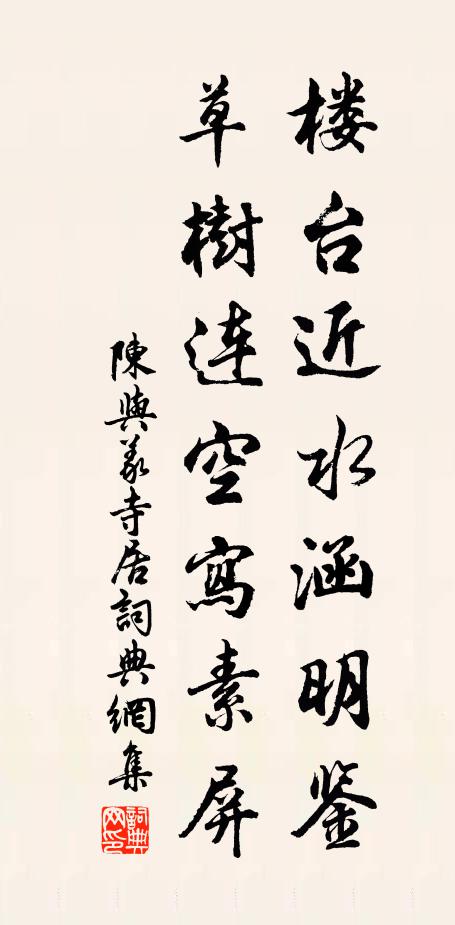 楼台近水涵明鉴
草樹連空寫素屏
陳與義寺居詞典網集
詞典网印